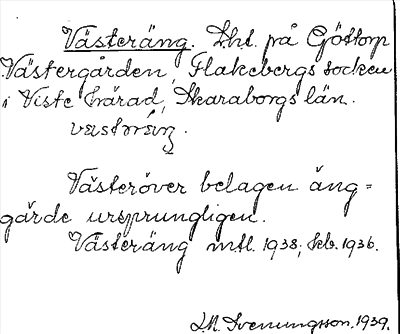 Västeräng. Lht. på Göttorp
Västergården, Flakebergs socken
i Viste härad, Skaraborgs län.
Västeröver belagen äng=
gärde ursprungligen.
Västeräng mtl. 1938; Jkb. 1936.
L.M. Svenungsson. 1939.